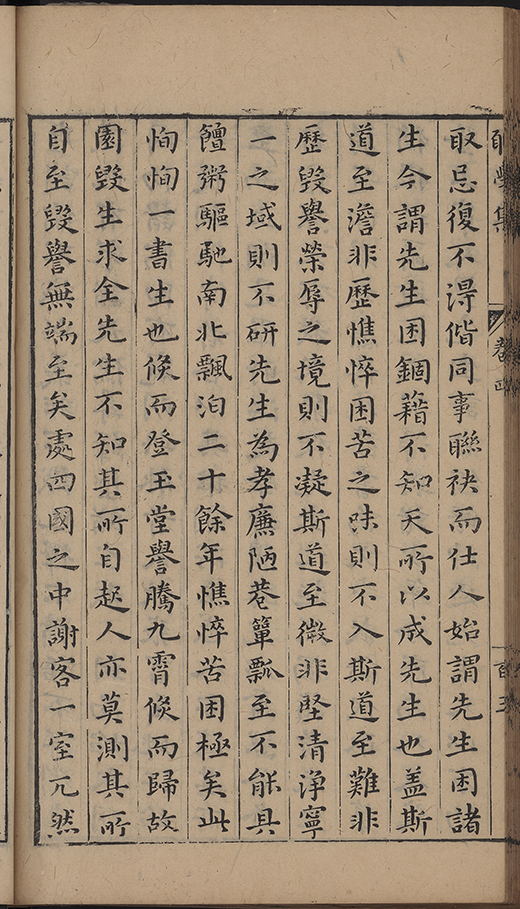 取忌復不淂偕同事聮袂而仕人始謂先生困諸
生今謂先生困錮藉不知天所以成先生也盖斯
道至澹非歷憔悴困苦之味則不入斯道至難非
歷毀譽榮辱之境則不凝斯道至微非堅清浄寧
一之域則不研先生為孝廉陋巷簞瓢至不能具
饘粥驅馳南北飄泊二十餘年憔悴苦困極矣此
恂恂一書生也倐而登玉堂譽騰九霄倐而歸故
園毀生求全先生不知其所自起人亦莫測其所
自至毀譽無端至矣處四國之中謝客一室兀然